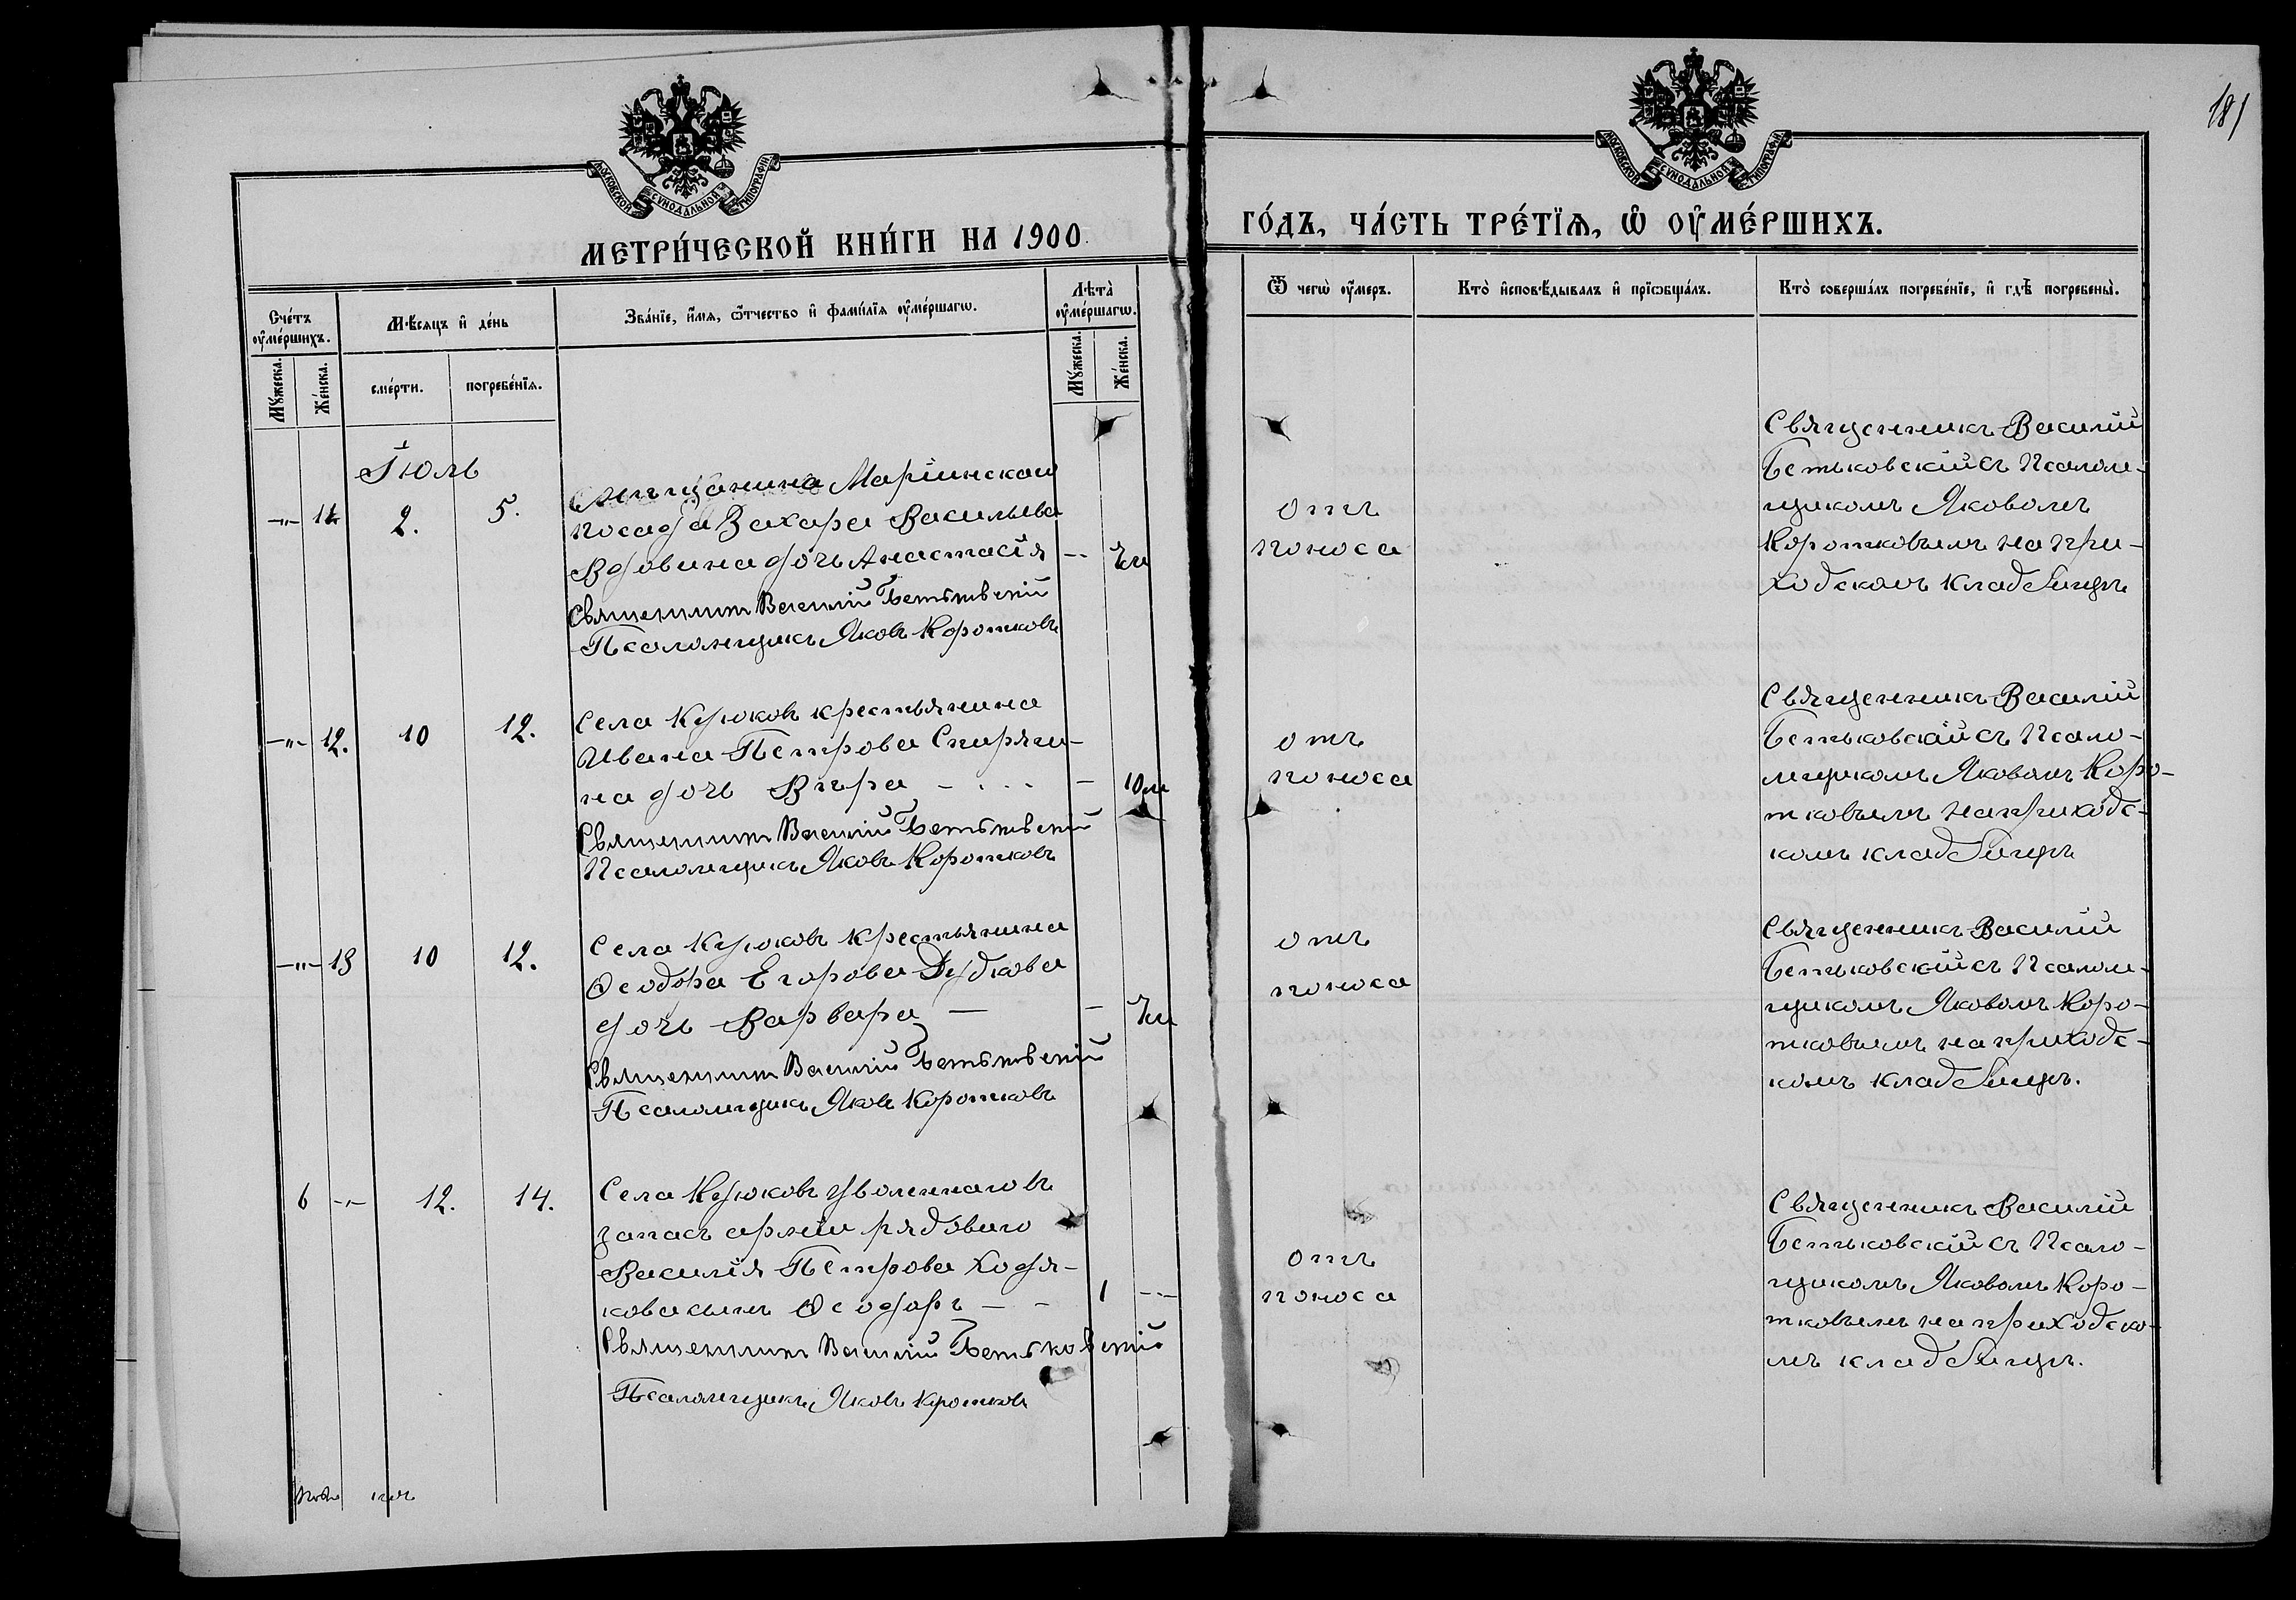 181
МОСКОВСКОЙ СѴНОДАЛЬНОЙ ТИПОГРАФІИ
МОСКОВСКОЙ СѴНОДАЛЬНОЙ ТИПОГРАФІИ
МЕТРИ́ЧЕСКОЙ КНИ́ГИ НА 1900
ГО́ДЪ, ЧА́СТЬ ТРЕ́ТЇѦ, Ѡ҆ ОУ҆МЕ́РШИХЪ.
Сче́тъ оу҆ме́ршихъ.
Мѣ́сѧцъ и҆ де́нь
Зва́нїе, и҆́мѧ, ѻ҆́тчество и҆ фами́лїѧ оу҆ме́ршагѡ.
Лѣта̀ оу҆ме́ршагѡ.
Мꙋ́жеска.
Же́нска.
сме́рти.
погребе́нїѧ.
Мꙋ́жеска.
Же́нска.
Ѿ чегѡ̀ оу҆́меръ.
Кто̀ и҆сповѣ́дывалъ и҆ прїѡбща́лъ.
Кто̀ соверша́лъ погребе́нїе, и҆ гдѣ̀ погребены̀.
Іюль
-„- 11 2. 5.
мѣщанина Маріинскаго
посада Захара Васильева
Вдовина дочь Анастасія -- 7м
Священникъ Василій Бетьковскій
Псаломщикъ Яковъ Коротковъ
отъ
поноса
Священникъ Василій
Бетьковскій съ Псалом-
щикомъ Яковомъ
Коротковымъ на при-
ходскомъ кладбищѣ
-„- 12. 10 12.
Села Крюковъ крестьянина
Ивана Петрова Спиряги-
на дочь Вѣра - . . - - 10м
Священникъ Василій Бетьковскій
Псаломщикъ Яковъ Коротковъ
отъ
поноса
Священникъ Василій
Бетьковскій съ Псало-
мщикомъ Яковомъ Коро-
тковымъ на приходс-
комъ кладбищѣ
-„- 13 10 12.
Села Крюковъ крестьянина
Ѳеодора Егорова Дудкова
дочь Варвара — - 7м
Священникъ Василій Бетьковскій
Псаломщикъ Яковъ Коротковъ
отъ
поноса
Священникъ Василій
Бетьковскій съ Псалом-
щикомъ Яковомъ Коро-
тковымъ на приходс-
комъ кладбищѣ.
6 -„- 12. 14.
Села Крюковъ уволеннаго въ
запасъ арміи рядоваго
Василія Петрова Ходя-
кова сынъ Ѳеодоръ - - 1 --
Священникъ Василій Бетьковскій
Псаломщикъ Яковъ Коротковъ
отъ
поноса
Священникъ Василій
Бетьковскій съ Псало-
мщикомъ Яковомъ Коро-
тковымъ на приходско-
мъ кладбищѣ.